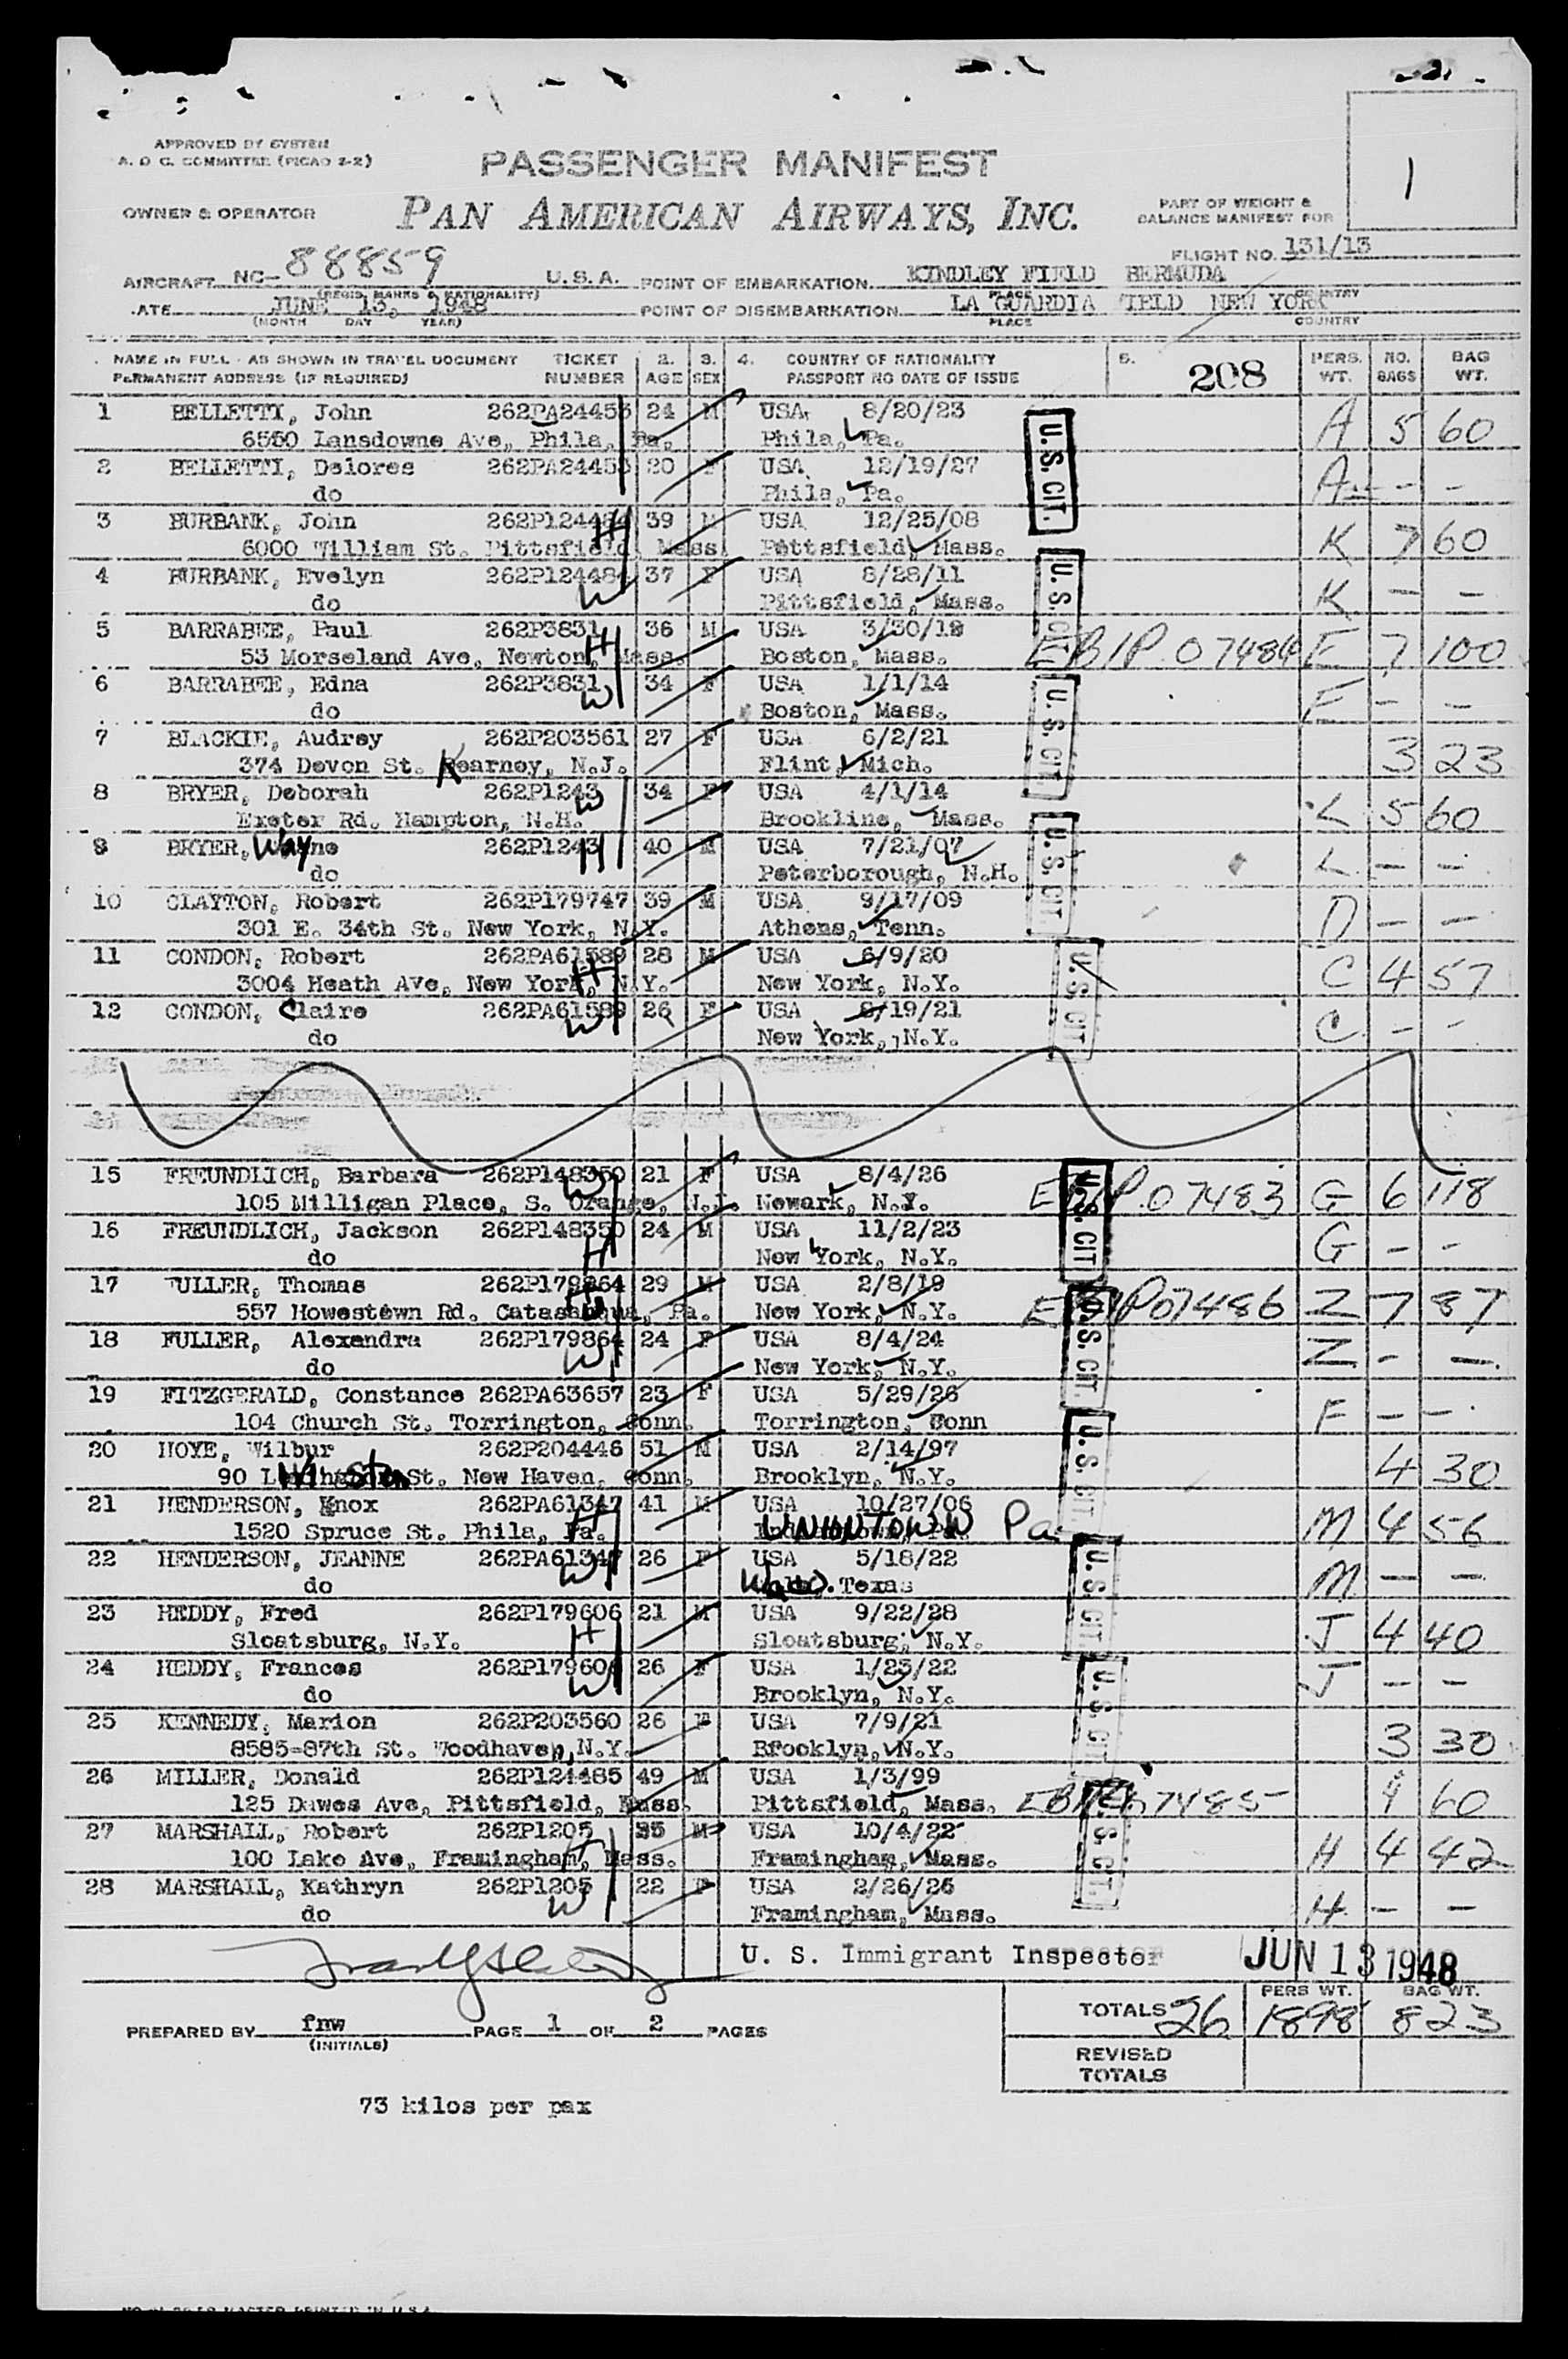 APPROVED BY SYSTEM
A. O C. COMMITTEE (PICAO 2-2)
PASSENGER MANIFEST
1
OWNER & OPERATOR
PAN AMERICAN AIRWAYS, INC.
PART OF WEIGHT &
BALANCE MANIFEST FOR
FLIGHT NO. 131/13
AIRCRAFT NC- 88859 U.S.A. POINT OF EMBARKATION KINDLEY FIELD BERMUDA
(REGIS. MARKS & NATIONALITY) PLACE COUNTRY
ATE JUNE 13, 1948 POINT OF DISEMBARKATION LA GUARDIA FIELD NEW YORK
(MONTH DAY YEAR) PLACE COUNTRY
NAME IN FULL - AS SHOWN IN TRAVEL DOCUMENT TICKET 2. 3. 4. COUNTRY OF NATIONALITY 5. 208 PERS. NO. BAG
PERMANENT ADDRESS (IF REQUIRED) NUMBER AGE SEX PASSPORT NO DATE OF ISSUE WT. BAGS WT.
1 BELLETTI, John 262PA24453 24 M USA 8/20/23 A 5 60
6550 Lansdowne Ave, Phila, Pa. Phila, Pa. U.S. CIT.
2 BELLETTI, Delores 262PA24453 20 F USA 12/19/27 A - -
do Phila, Pa.
3 BURBANK, John 262P124484 39 M USA 12/25/08 K 7 60
6000 William St. Pittsfield, Mass. H Pittsfield, Mass.
4 BURBANK, Evelyn 262P124484 37 F USA 8/28/11 K - -
do W Pittsfield, Mass. U.S. CIT.
5 BARRABEE, Paul 262P3831 H 36 M USA 3/30/12 EBIP 07484 F 7 100
53 Morseland Ave, Newton, Mass. Boston, Mass.
6 BARRABEE, Edna 262P3831 34 F USA 1/1/14 F - -
do W Boston, Mass. U.S. CIT.
7 BLACKIE, Audrey 262P203561 27 F USA 6/2/21 3 23
374 Devon St. Kearney, N.J. Flint, Mich.
8 BRYER, Deborah 262P1243 W 34 F USA 4/1/14 L 5 60
Exeter Rd. Hampton, N.H. Brookline, Mass.
9 BRYER, Wayne 262P1243 H 40 M USA 7/21/07 L - -
do Peterborough, N.H. U.S. CIT
10 CLAYTON, Robert 262P179747 39 M USA 9/17/09 D - -
301 E. 34th St. New York, N.Y. Athens, Tenn.
11 CONDON, Robert 262PA61589 28 M USA 6/9/20 C 4 57
3004 Heath Ave, New York, N.Y. H New York, N.Y. U.S. CIT
12 CONDON, Claire 262PA61589 26 F USA 8/19/21 C - -
do W New York, N.Y.
15 FREUNDLICH, Barbara 262P148350 21 F USA 8/4/26 07483 G 6 118
105 Milligan Place, S. Orange, N.J. W Newark, N.Y. U.S. CIT
16 FREUNDLICH, Jackson 262P148350 24 M USA 11/2/23 G - -
do H New York, N.Y.
17 FULLER, Thomas 262P179864 29 M USA 2/8/19 07486 Z 7 87
557 Howestown Rd. Catasauqua, Pa. H New York, N.Y.
18 FULLER, Alexandra 262P179864 24 F USA 8/4/24 Z - -
do W New York, N.Y. U.S. CIT.
19 FITZGERALD, Constance 262PA63657 23 F USA 5/29/26 F - -
104 Church St. Torrington, Conn. Torrington, Conn
20 HOYE, Wilbur 262P204446 51 M USA 2/14/97 4 30
90 Winston St. New Haven, Conn. Brooklyn, N.Y. U.S. CIT.
21 HENDERSON, Knox 262PA61347 41 M USA 10/27/06 M 4 56
1520 Spruce St. Phila, Pa. H UNIONTOWN Pa.
22 HENDERSON, JEANNE 262PA61347 26 F USA 5/18/22 M - -
do W Waco. Texas U.S. CIT.
23 HEDDY, Fred 262P179606 21 M USA 9/22/28 J 4 40
Sloatsburg, N.Y. H Sloatsburg, N.Y.
24 HEDDY, Frances 262P179606 26 F USA 1/23/22 J - -
do W Brooklyn, N.Y. U.S. CIT
25 KENNEDY, Marion 262P203560 26 F USA 7/9/21 3 30
8585-87th St. Woodhaven, N.Y. Brooklyn, N.Y.
26 MILLER, Donald 262P124485 49 M USA 1/3/99 07485 4 60
125 Dawes Ave, Pittsfield, Mass. Pittsfield, Mass.
27 MARSHALL, Robert 262P1205 25 M USA 10/4/22 H 4 42
100 Lake Ave, Framingham, Mass. H Framingham, Mass. U.S. CIT.
28 MARSHALL, Kathryn 262P1205 22 F USA 2/26/26 H - -
do W Framingham, Mass.
U. S. Immigrant Inspector JUN 13 1948
TOTALS 26 PERS WT. 1898 BAG WT. 823
PREPARED BY fnw PAGE 1 OF 2 PAGES
(INITIALS)
REVISED
TOTALS
73 kilos per pax